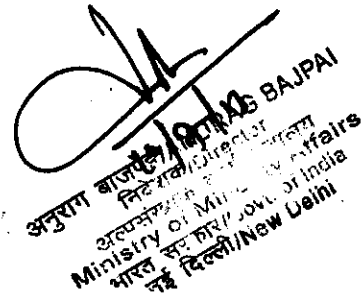 अनुराग बाजपेई/ANURAG BAJPAI
निदेशक/Director
अल्पसंख्यक मंत्रालय
Ministry of Affairs
भारत सरकार/Govt. of India
नई दिल्ली/New Delhi